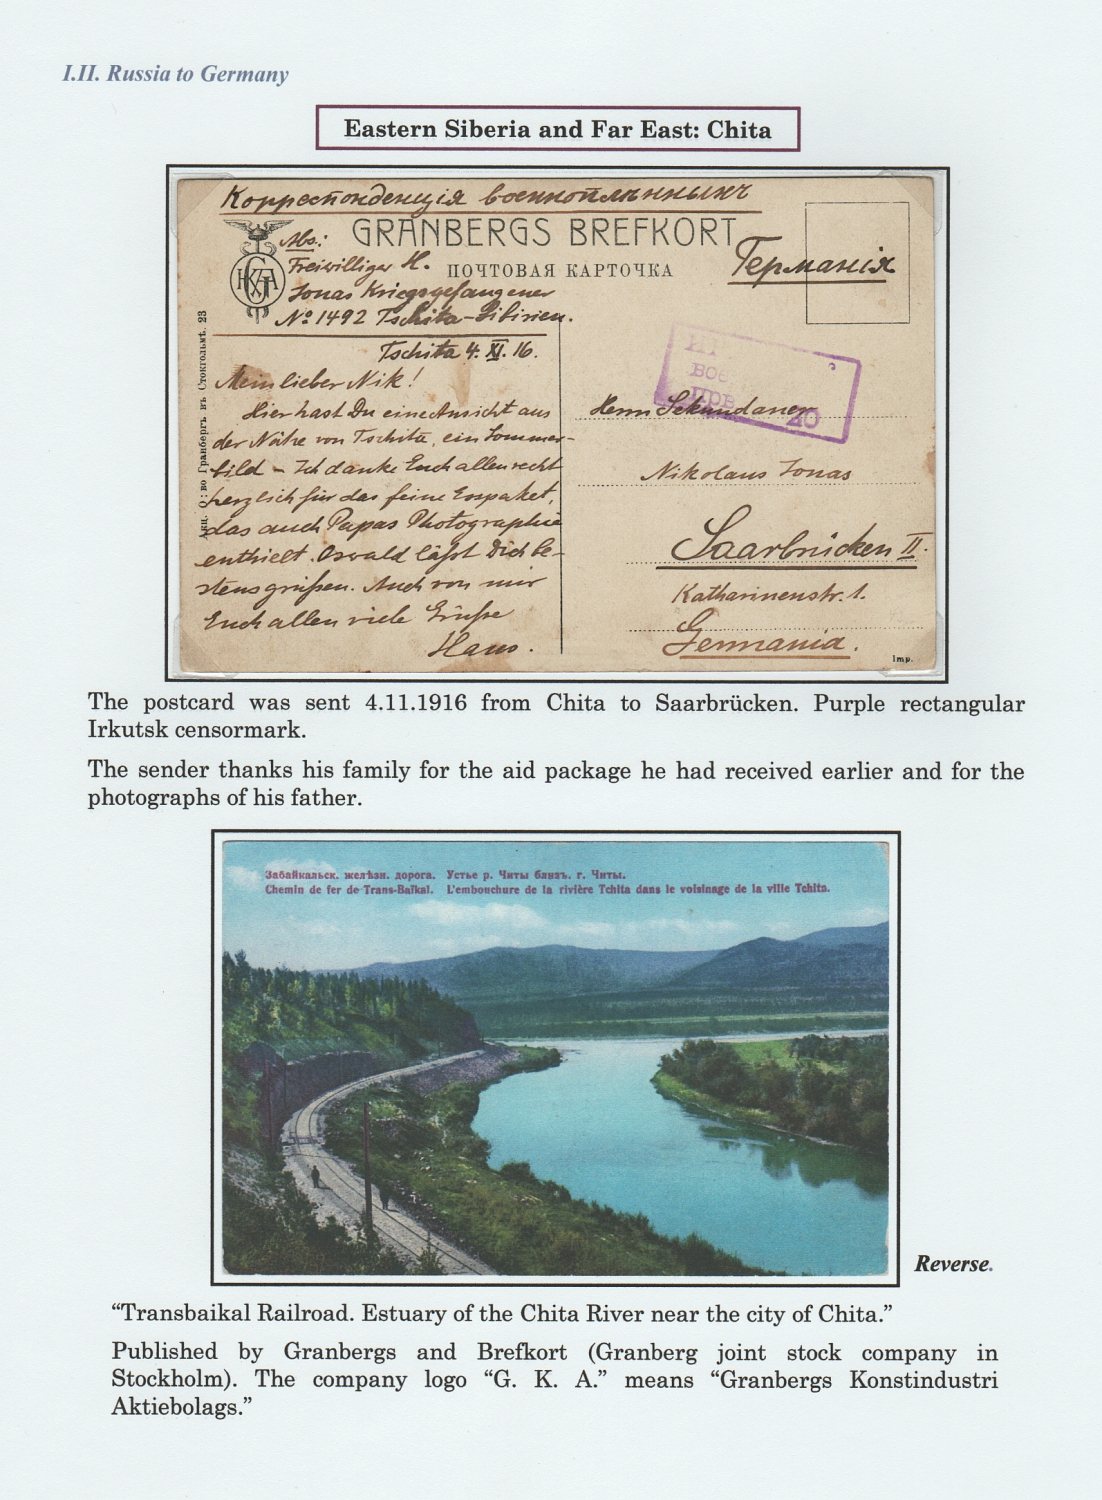 I.II. Russia to Germany
Eastern Siberia and Far East: Chita
Корреспонденція военноплѣнныхъ
GRANBERGS BREFKORT
ПОЧТОВАЯ КАРТОЧКА
Abs:
Freiwilliger H.
Jonas Kriegsgefangener
№ 1492 Tschita-Sibirien.
Германія
Tschita 4. XI. 16.
Mein lieber Nik!
Hier hast Du eine Ansicht aus
der Nähe von Tschita, ein Sommer-
bild - Ich danke Euch allen recht
herzlich für das feine Esspaket,
das auch Papas Photographie
enthielt. Oswald läßt Dich be-
stens grüßen. Auch von mir
Euch allen viele Grüße
Hans.
Акц. О:во Гранбергъ въ Стокгольмѣ. 23
ИР
вое
цов
20
Herrn Sekundaner
Nikolaus Jonas
Saarbrücken II.
Katharinenstr. 1.
Germania.
Imp.
The postcard was sent 4.11.1916 from Chita to Saarbrücken. Purple rectangular
Irkutsk censormark.
The sender thanks his family for the aid package he had received earlier and for the
photographs of his father.
Забайкальск. желѣзн. дорога. Устье р. Читы близъ. г. Читы.
Chemin de fer de Trans-Baïkal. L'embouchure de la rivière Tchita dans le voisinage de la ville Tchita.
Reverse.
“Transbaikal Railroad. Estuary of the Chita River near the city of Chita.”
Published by Granbergs and Brefkort (Granberg joint stock company in
Stockholm). The company logo “G. K. A.” means “Granbergs Konstindustri
Aktiebolags.”